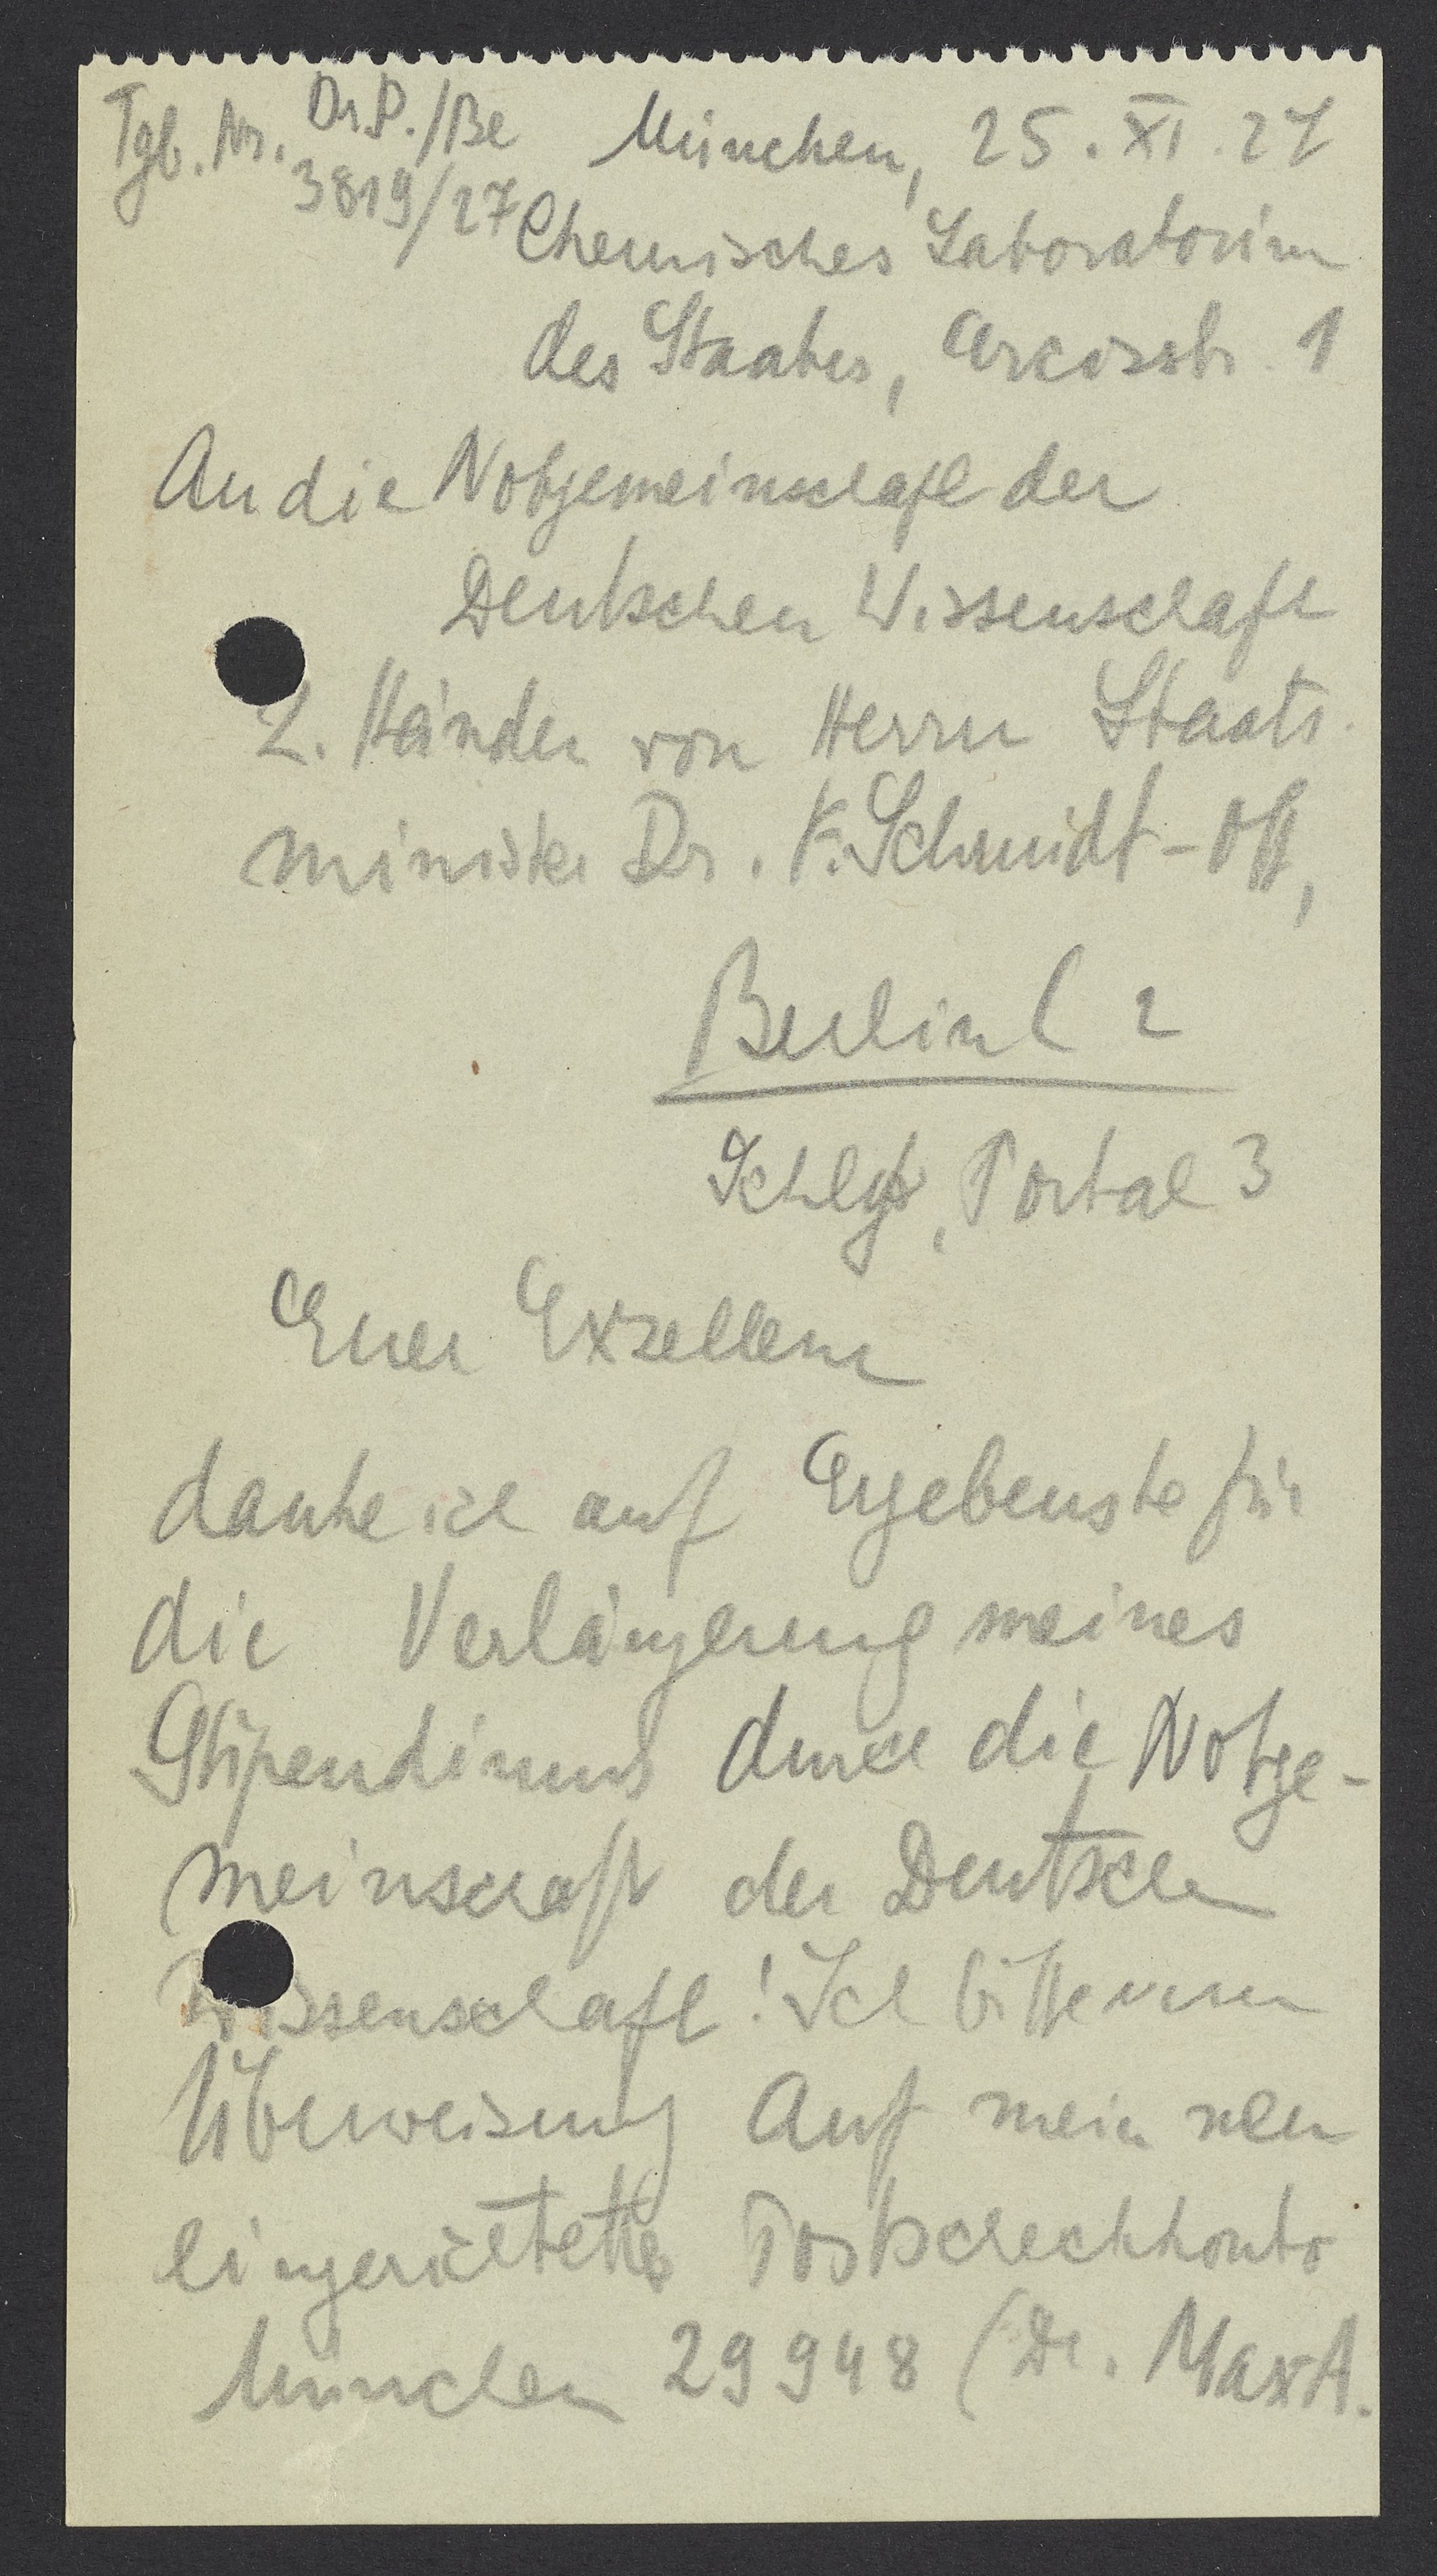 Tgb. Nr. Dr.P./Be
3819/27
München, 25. XI. 27
Chemisches Laboratorium
des Staates, Arcisstr. 1
An die Notgemeinschaft der
Deutschen Wissenschaft
z. Händen von Herrn Staats-
minister Dr. F. Schmidt-Ott,
Berlin C 2
Schloß, Portal 3
Euer Exzellenz
danke ich auf Ergebenste für
die Verlängerung meines
Stipendiums durch die Notge-
meinschaft der Deutschen
Wissenschaft! Ich bitte um
Überweisung auf mein neu
eingerichtetes Postscheckkonto
München 29948 (Dr. Max A.